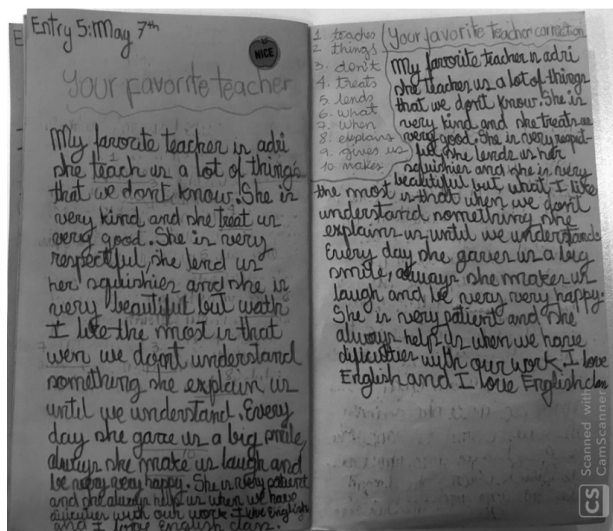 Entry 5: May 7th
NICE
Your favorite teacher
My favorite teacher is adri
she teach us a lot of things
that we dont know. She is
very kind and she treat us
very good. She is very
respectful, she lend us
her squishies and she is
very beautiful but wath
I like the most is that
wen we dont understand
something she explain us
until we understand. Every
day she gave us a big smile,
always she make us laugh and
be very very happy. She is very patient
and she always help us when we have
dificulties with our work. I love English
and I love English class.
1 teaches
2 things
3. don't
4. treats
5. lends
6. what
7. when
8. explains
9. gives us
10 makes
Your favorite teacher correction
My favorite teacher is adri
she teaches us a lot of things
that we don't know. She is
very kind and she treats us
very good. She is very respect-
ful, she lends us her
squishies and she is very
beautiful but what I like
the most is that when we don't
understand something she
explains us until we understands
Every day she gaves us a big
smile, always she makes us
laugh and be very very happy.
She is very patient and she
always help us when we have
dificulties with our work. I love
English and I love English class
CS
Scanned with
CamScanner